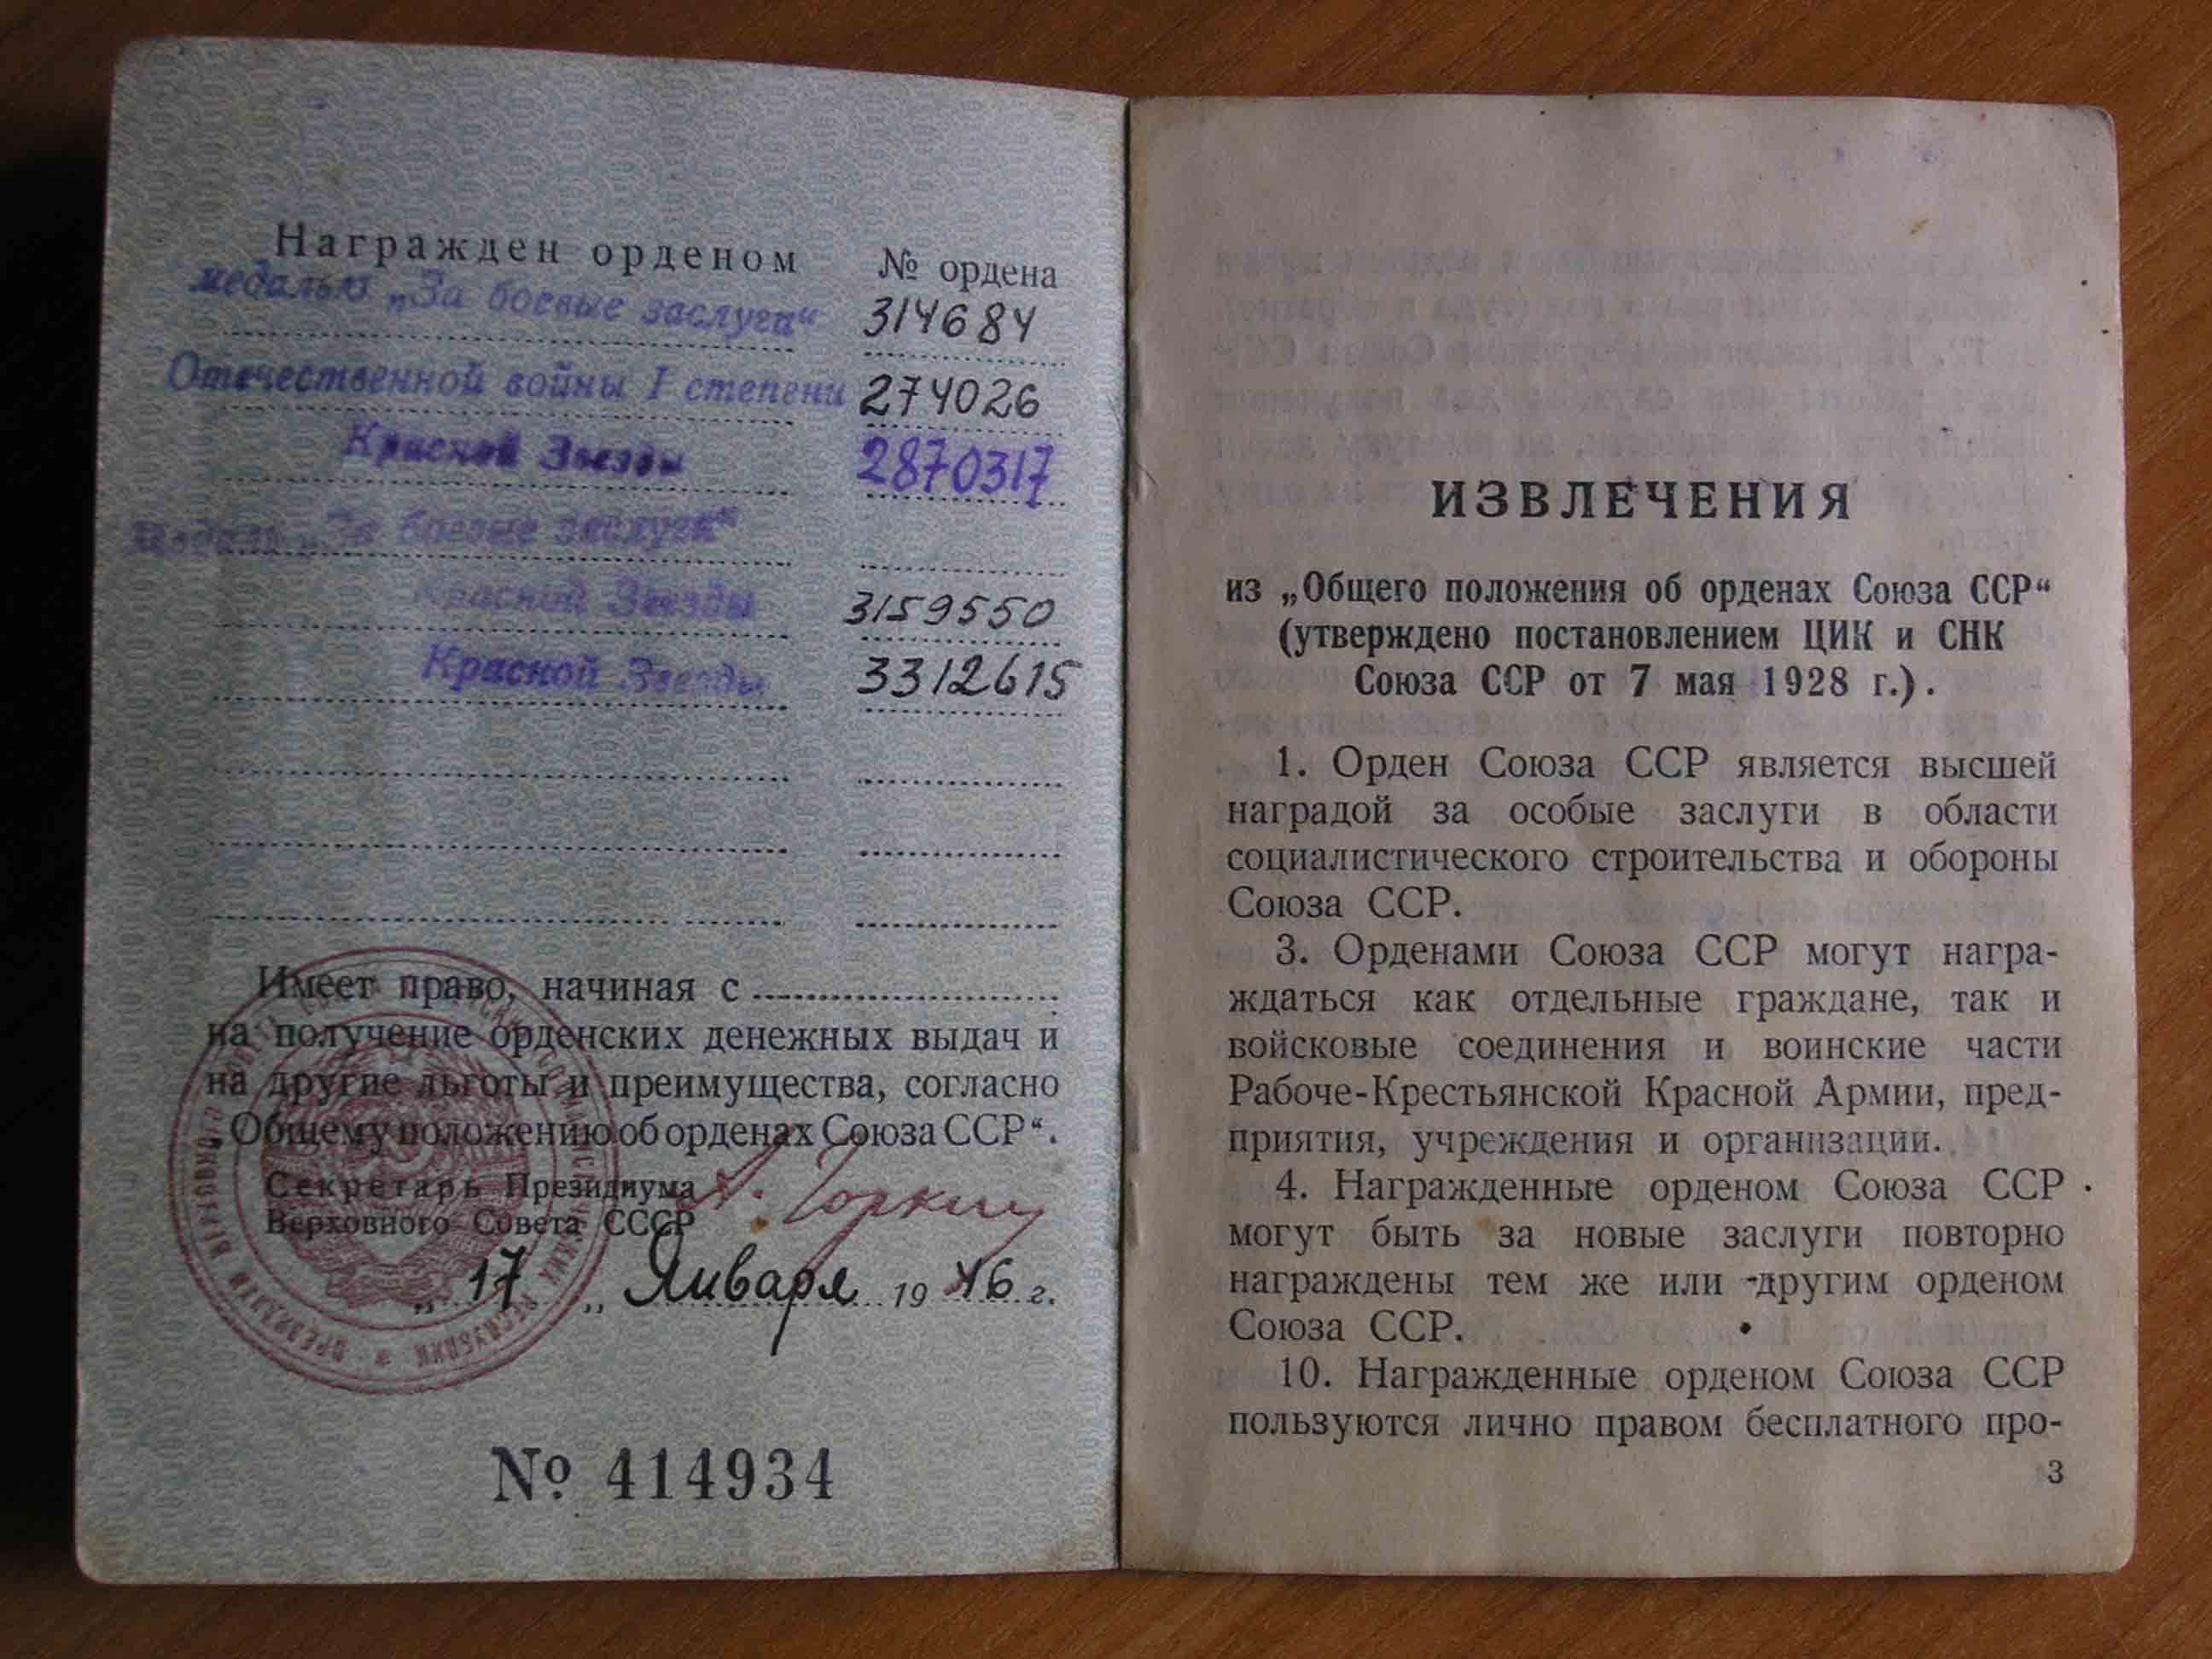 Награжден орденом № ордена
медалью „За боевые заслуга“ 314684
Отечественной войны I степени 274026
Красной Звезды 2870317
Медаль „За боевые заслуги“
Красной Звезды 3159550
Красной Звезды 3312615
Имеет право, начиная с
на получение орденских денежных выдач и
на другие льготы и преимущества, согласно
„Общему положению об орденах Союза ССР“.
Секретарь Президиума
Верховного Совета СССР А. Горкин
„ 17 „ Января 1946 г.
№ 414934
ИЗВЛЕЧЕНИЯ
из „Общего положения об орденах Союза ССР“
(утверждено постановлением ЦИК и СНК
Союза ССР от 7 мая 1928 г.).
1. Орден Союза ССР является высшей
наградой за особые заслуги в области
социалистического строительства и обороны
Союза ССР.
3. Орденами Союза ССР могут награ-
ждаться как отдельные граждане, так и
войсковые соединения и воинские части
Рабоче-Крестьянской Красной Армии, пред-
приятия, учреждения и организации.
4. Награжденные орденом Союза ССР
могут быть за новые заслуги повторно
награждены тем же или другим орденом
Союза ССР.
10. Награжденные орденом Союза ССР
пользуются лично правом бесплатного про-
3